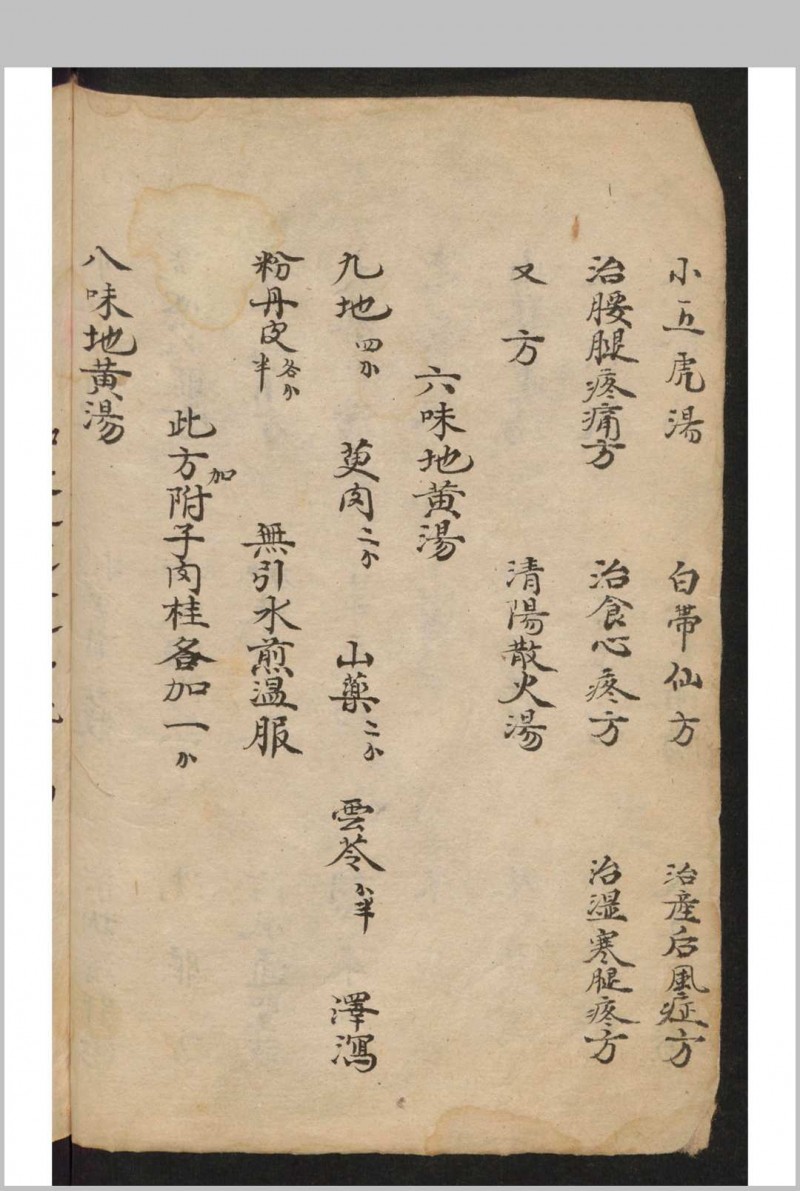 小五虎湯 白帶仙方 治產后風症方
治腰腿疼痛方 治食心疼方 治濕寒腿疼方
又方 清陽散火湯
六味地黃湯
九地四 萸肉二 山藥二 雲苓半 澤瀉
粉丹皮各半 無引水煎溫服
此方加附子肉桂各加一
八味地黃湯